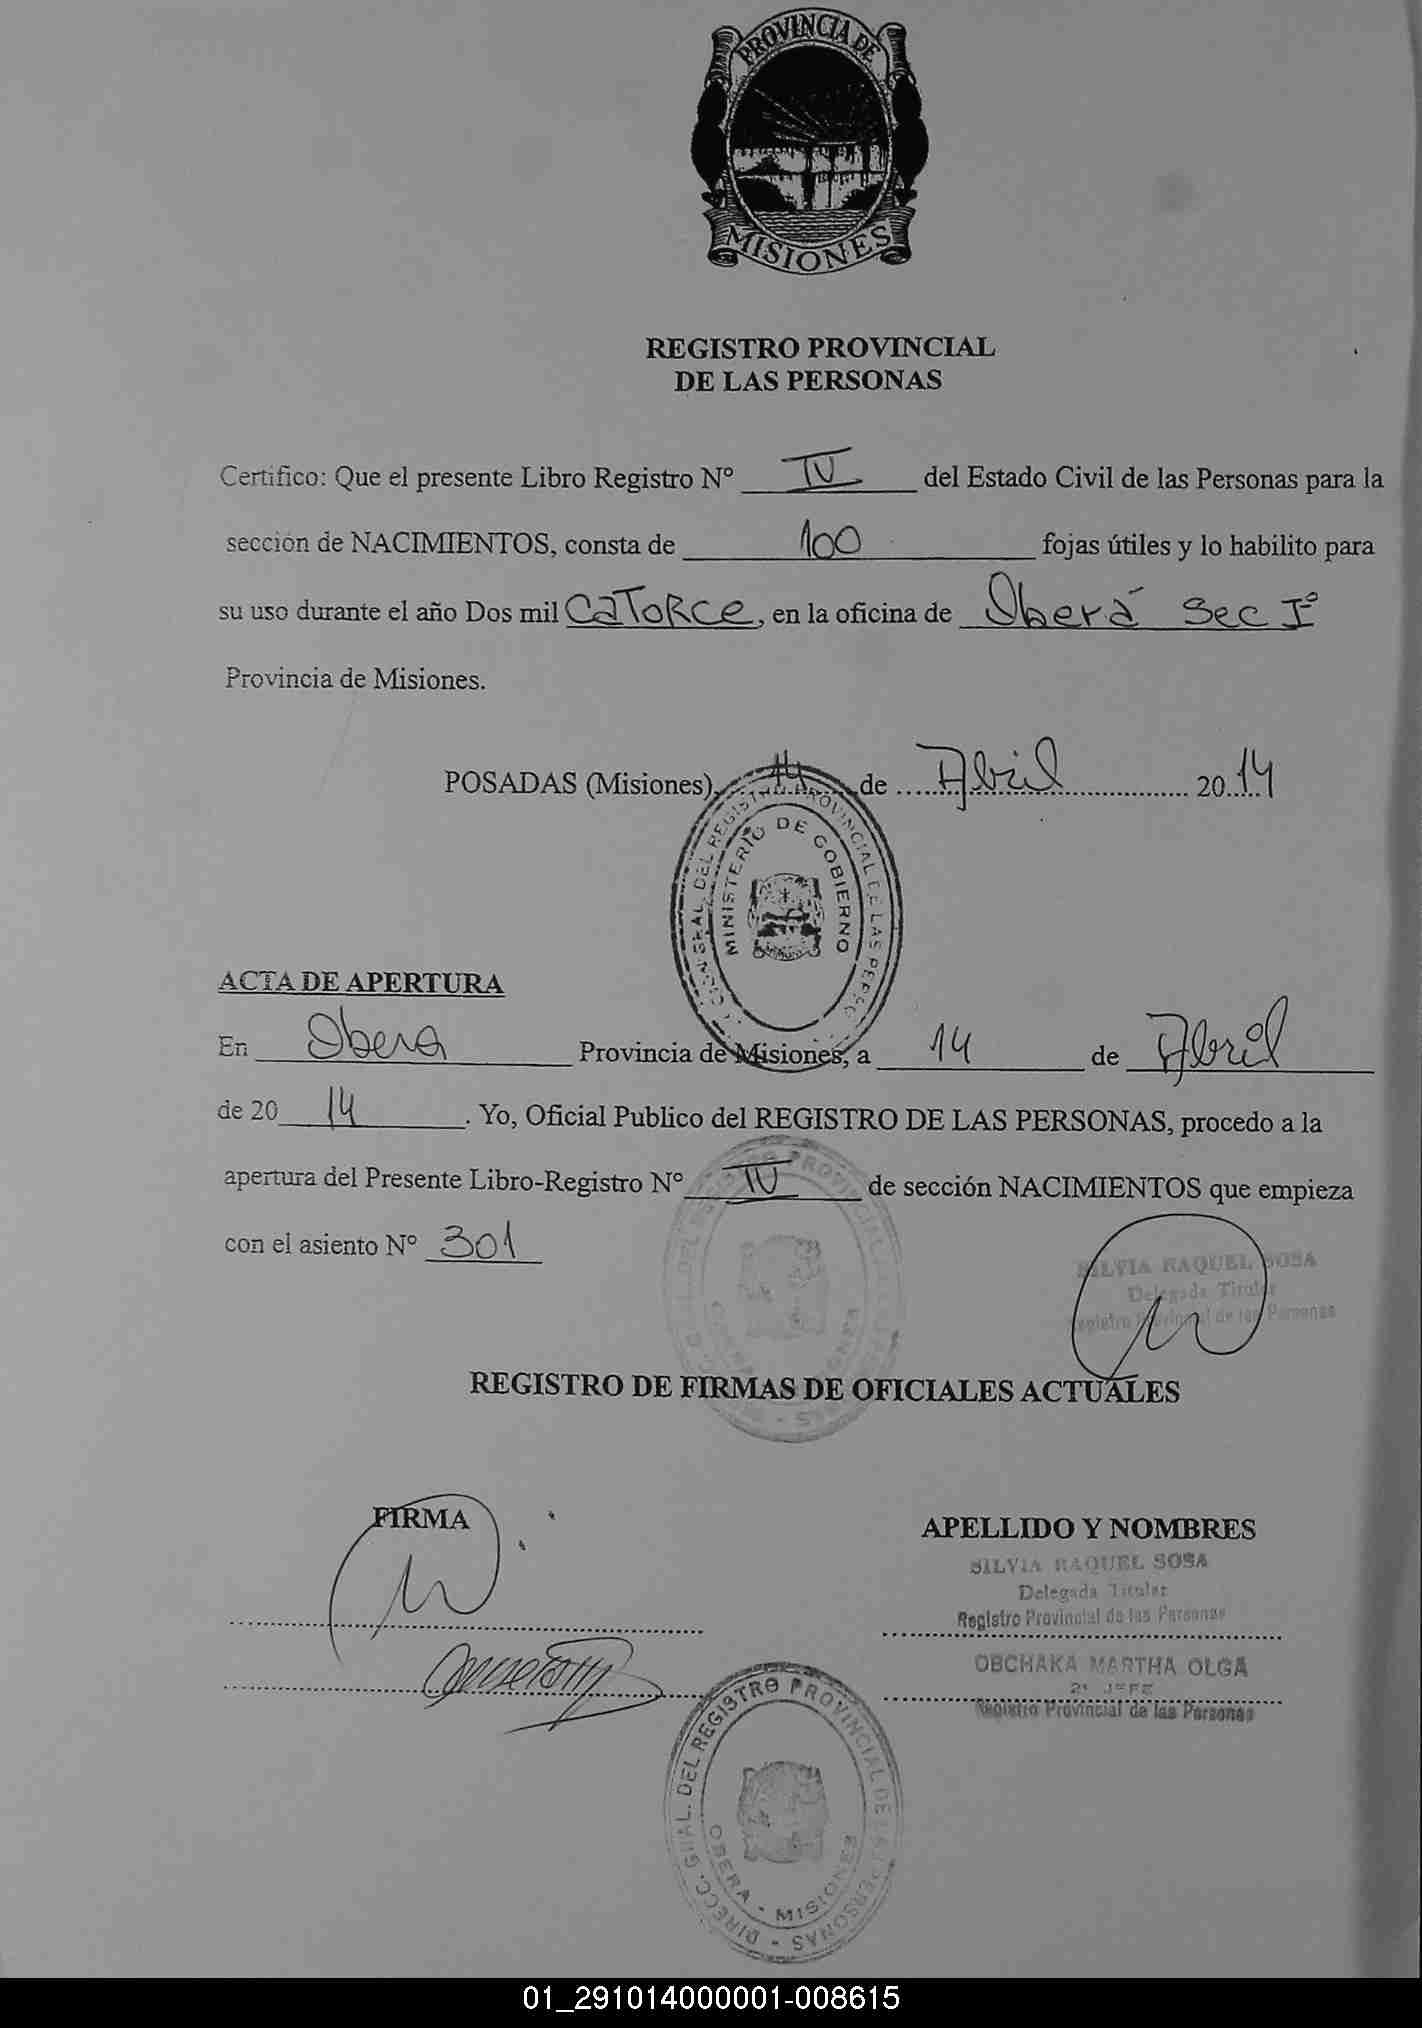 PROVINCIA DE
MISIONES
REGISTRO PROVINCIAL
DE LAS PERSONAS
Certifico: Que el presente Libro Registro Nº IV del Estado Civil de las Personas para la
sección de NACIMIENTOS, consta de 100 fojas útiles y lo habilito para
su uso durante el año Dos mil CaTORCe, en la oficina de Oberá Sec Iº
Provincia de Misiones.
POSADAS (Misiones), 14 de Abril 2014
REGISTRO PROVINCIAL DE LAS
MINISTERIO DE GOBIERNO
ACTA DE APERTURA
En Obera Provincia de Misiones, a 14 de Abril
de 20 14. Yo, Oficial Publico del REGISTRO DE LAS PERSONAS, procedo a la
apertura del Presente Libro-Registro Nº IV de sección NACIMIENTOS que empieza
con el asiento Nº 301
SILVIA RAQUEL SOSA
Delegada Titular
Registro Provincial de las Personas
REGISTRO DE FIRMAS DE OFICIALES ACTUALES
FIRMA
APELLIDO Y NOMBRES
SILVIA RAQUEL SOSA
Delegada Titular
Registro Provincial de las Personas
OBCHAKA MARTHA OLGA
2º JEFE
Registro Provincial de las Personas
DIRECC. GRAL. DEL REGISTRO PROVINCIAL DE LAS PERSONAS
OBERA - MISIONES
01_291014000001-008615